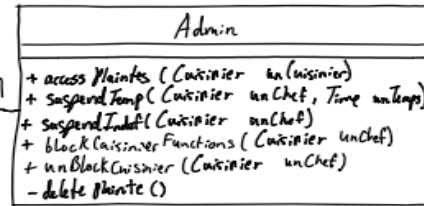 Admin
+ access Plaintes (Cuisinier unCuisinier)
+ suspendTemp(Cuisinier unChef, Time unTemps)
+ suspendIndef(Cuisinier unChef)
+ blockCuisinierFunctions (Cuisinier unChef)
+ unBlockCuisinier (Cuisinier unChef)
- delete Plainte ()